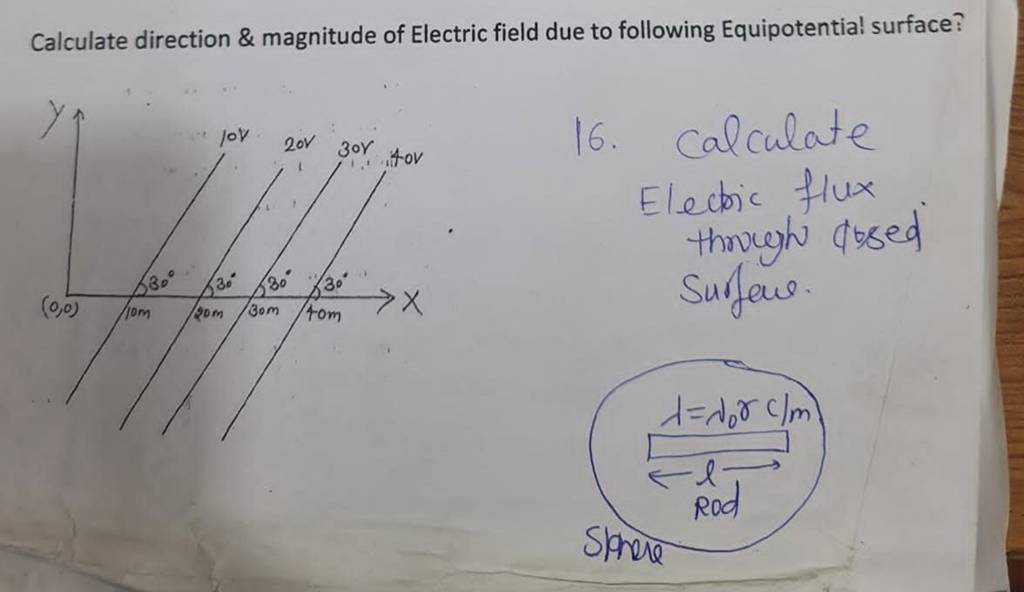 Calculate direction & magnitude of Electric field due to following Equipotential surface?
Y
10V
20V
30V
40V
30°
30°
30°
30°
(0,0)
10m
20m
30m
40m
X
16. Calculate
Electric flux
through closed
Surface.
λ=λ₀r C/m
l
Rod
Sphere